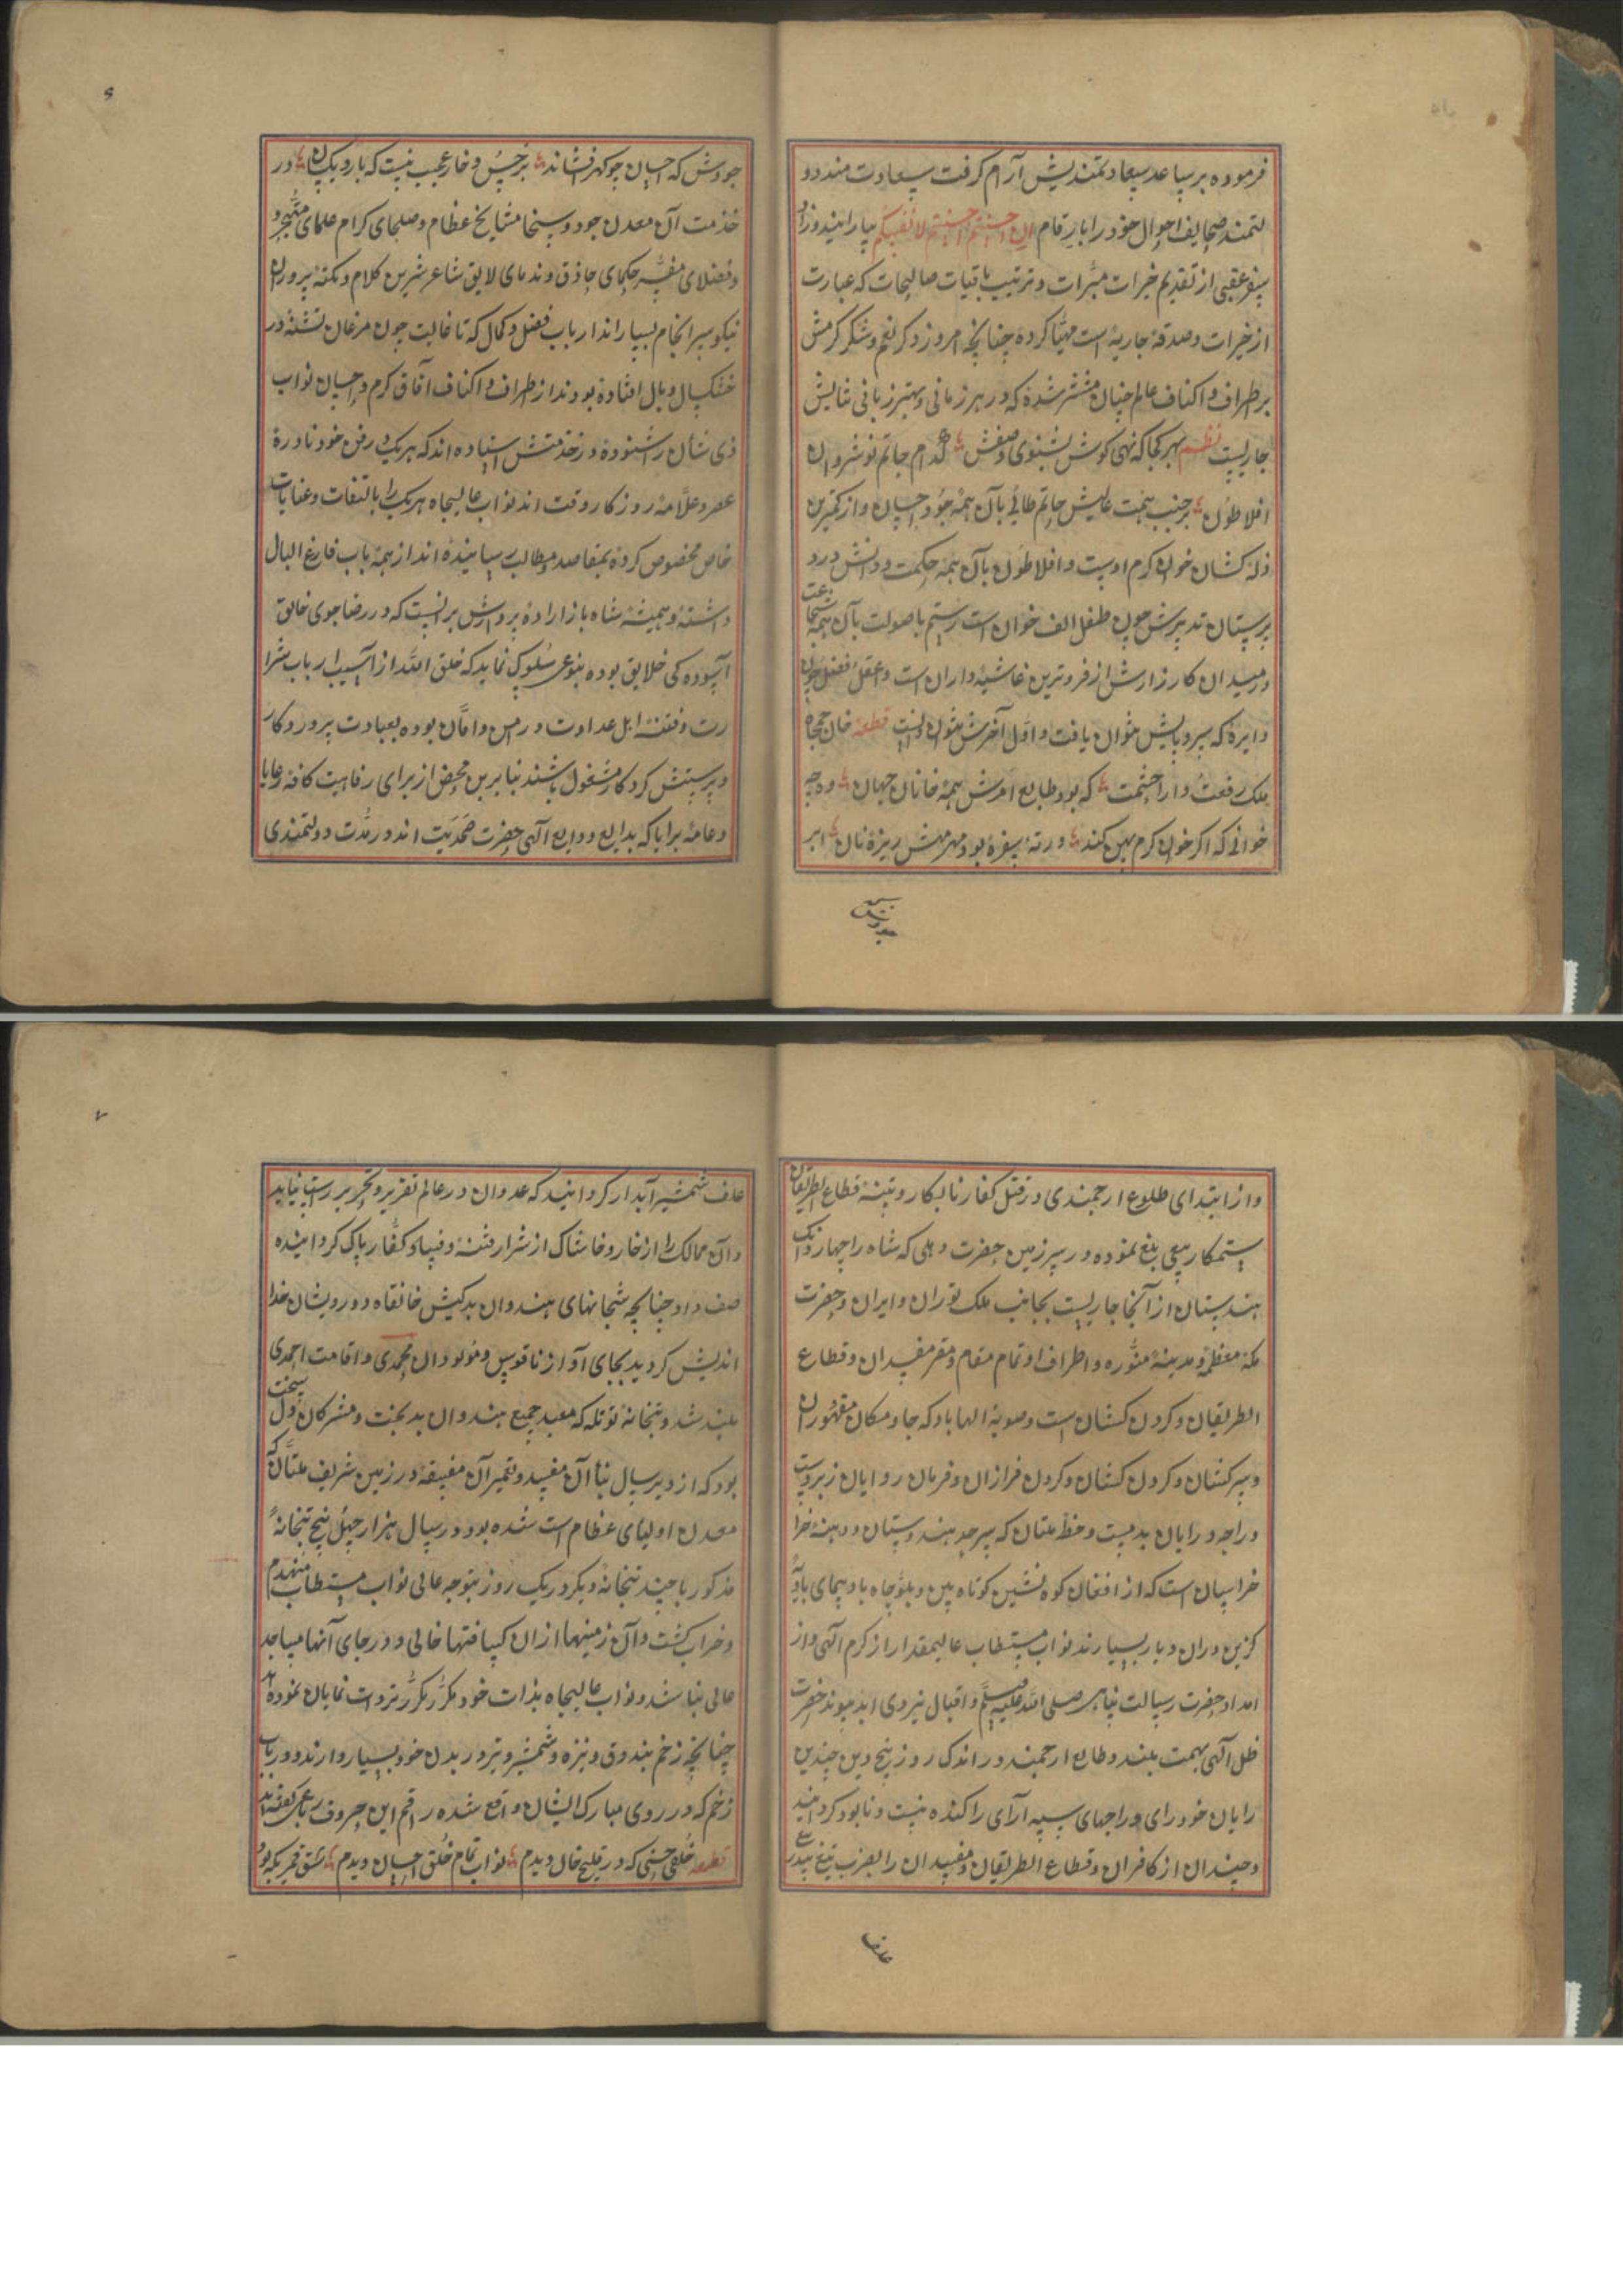 فرموده بر ساعد سعادتمندیش آرام گرفت سعادت مند دو
لتمند صحایف احوال خود را بارقام ان احسنتم احسنتم لانفسکم بیارایند وزاد
سفر عقبی از تقدیم خیرات مبرات و ترتیب باقیات صالحات که عبارت
از خیرات و صدقهٔ جاریه است مهیّا کرده چنانچه امروز ذکر نعم و شکر کرمش
بر اطراف و اکناف عالم چنان منتشر شده که در هر زمانی و بهتر زبانی ثنایش
جاریست نظم بهر کجا که نهی گوش بشنوی وصفش کدام حاتم نوشروان
افلاطون بجنب همت عالیش حاتم طائی بآن همه جود و احسان از کمترین
زله کشان خوان کرم اوست و افلاطون بآن همه حکمت و دانش در د
برستان تدبیرش چون طفل الف خوان است رستم با صولت بآن همه شجاعت
در میدان کارزارش از فروترین غاشیه داران است و عقل فضل چون
دایره که سر و پایش نتوان یافت و اول آخرش نتوان دانست قطعه خان جمجاه
ملک رفعت دارا حشمت که بود طابع امرش همه خانان جهان وه چه
خوانی که اگر خوان کرم پهن کند در ته سفره بود مهر و مهش ریزهٔ نان ابر
جودش که
جودش که احسان چو گهر افشاند بر خس و خار عجب نیست که بارد یکسان در
خدمت آن معدن جود و سخا مشایخ عظام و صلحای کرام علمای متبحر و
و فضلای مفسر حکمای حاذق و ندمای لایق شاعر شیرین کلام و نکته پروران
نیکو سرانجام بسیار اند ارباب فضل و کمال که تا غایت چون مرغان تشنه در
خشکسال وبال افتاده بودند از اطراف و اکناف آفاق کرم و احسان نواب
ذی شان را شنوده در خدمتش استاده اند که هر یک در فن خود نادرهٔ
عصر و علامهٔ روزگار وقت اند نواب عالیجاه هر یک را بالتفات و عنایات
خاص مخصوص کرده بمقاصد و مطالب رسانیده اند از همه باب فارغ البال
داشته و همیشه شاه باز اراده پروازش بر آنست که در رضا جوی خالق
آسوده کی خلایق بوده بنوعی سلوک نماید که خلق الله از آسیب ارباب شرا
رت و فتنه اهل عداوت در امن و امان بوده بعبادت پروردگار
و پرستش کردکار مشغول باشند بنابرین محض از برای رفاهیت کافهٔ رعایا
و عامهٔ برایا که بدایع ودایع الهی حضرت صمدیت اند در مدت دولتمندی
و از ابتدای طلوع ارجمندی در قتل کفار نابکار و تنبیه قطاع الطریقان
ستمکار سعی بلیغ نموده در سرزمین حضرت دهلی که شاه راه چهار دانک
هندستان از آنجا جاریست بجانب ملک توران و ایران و حضرت
مکهٔ معظمه و مدینهٔ منوره و اطراف او تمام مقام و مقر مفسدان و قطاع
الطریقان و کردن کشان است و صوبهٔ الهاباد که جا و مکان مقهوران
و سرکشان و کردن کشان و کردن فرازان و فرمان روایان زبردست
و راجه و رایان بدمست و خطهٔ ملتان که سرحد هندوستان و دهنهٔ خرا
خراسان است که از افغان کوه نشین کوتاه بین و بلوچاه باد پیمای بادیه
گزین در آن دیار بسیارند نواب مستطاب عالیمقدار از کرم الهی و از
امداد حضرت رسالت پناهی صلی الله علیه وسلم و اقبال نیروی ابد پیوند حضرت
ظل الهی بهمت بلند و طالع ارجمند در اندک روز پنج و بن چندین
رایان خود رای و راجهای سپه آرای را کنده نیست و نابود کردانید
و چندان از کافران و قطاع الطریقان و مفسدان را بضرب تیغ بیدریغ
علف
علف شمشیر آبدار کردانیدند که عدوان در عالم تقریر و تحریر راست نیاید
و آن ممالک را از خار و خاشاک از شرار فتنه و فساد کفار پاک کردانیده
صفا داد چنانچه بتخانهای هندوان بدکیش خانقاه درویشان خدا
اندیش کردید بجای آواز ناقوس و مولودان محمدی و اقامت احمدی
بلند شد و بتخانهٔ توتله که معبد جمیع هندوان بدبخت و مشرکان دل سخت
بود که از دیر سال بنا آن مفسد و تعمیر آن مفسقه در زمین شریف ملتان که
معدن اولیای عظام است شده بود در سال هزار چهل پنج بتخانهٔ
مذکور با چند بتخانهٔ دیگر در یک روز بتوجه عالی نواب مستطاب منهدم
و خراب گشت و آن زمینها از آن کثافتها خالی و در جای آنها مساجد
عالی بنا شد و نواب عالیجاه بذات خود مکرر مکرر تردات نمایان نموده اند
چنانچه زخم بندوق و نیزه و شمشیر و تیر در بدن خود بسیار دارند و در باب
زخم که در روی مبارک ایشان واقع شده راقم این حروف رباعی گفته اند
قطعه خلقی حسنی که در قلیج خان دیدم نواب تمام خلق احسان دیدم شق قمر یکه بود